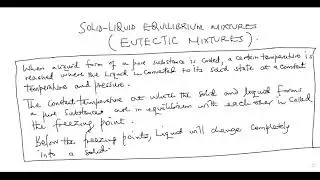 SOLID-LIQUID EQUILIBRIUM MIXTURES
(EUTECTIC MIXTURES).
When a liquid form of a pure substance is cooled, a certain temperature is
reached where the liquid is converted to its solid state at a constant
temperature and pressure.
The constant temperature at which the solid and liquid forms
a pure substances are in equilibrium with each other is called
the freezing point.
Below the freezing points, liquid will change completely
into a solid.